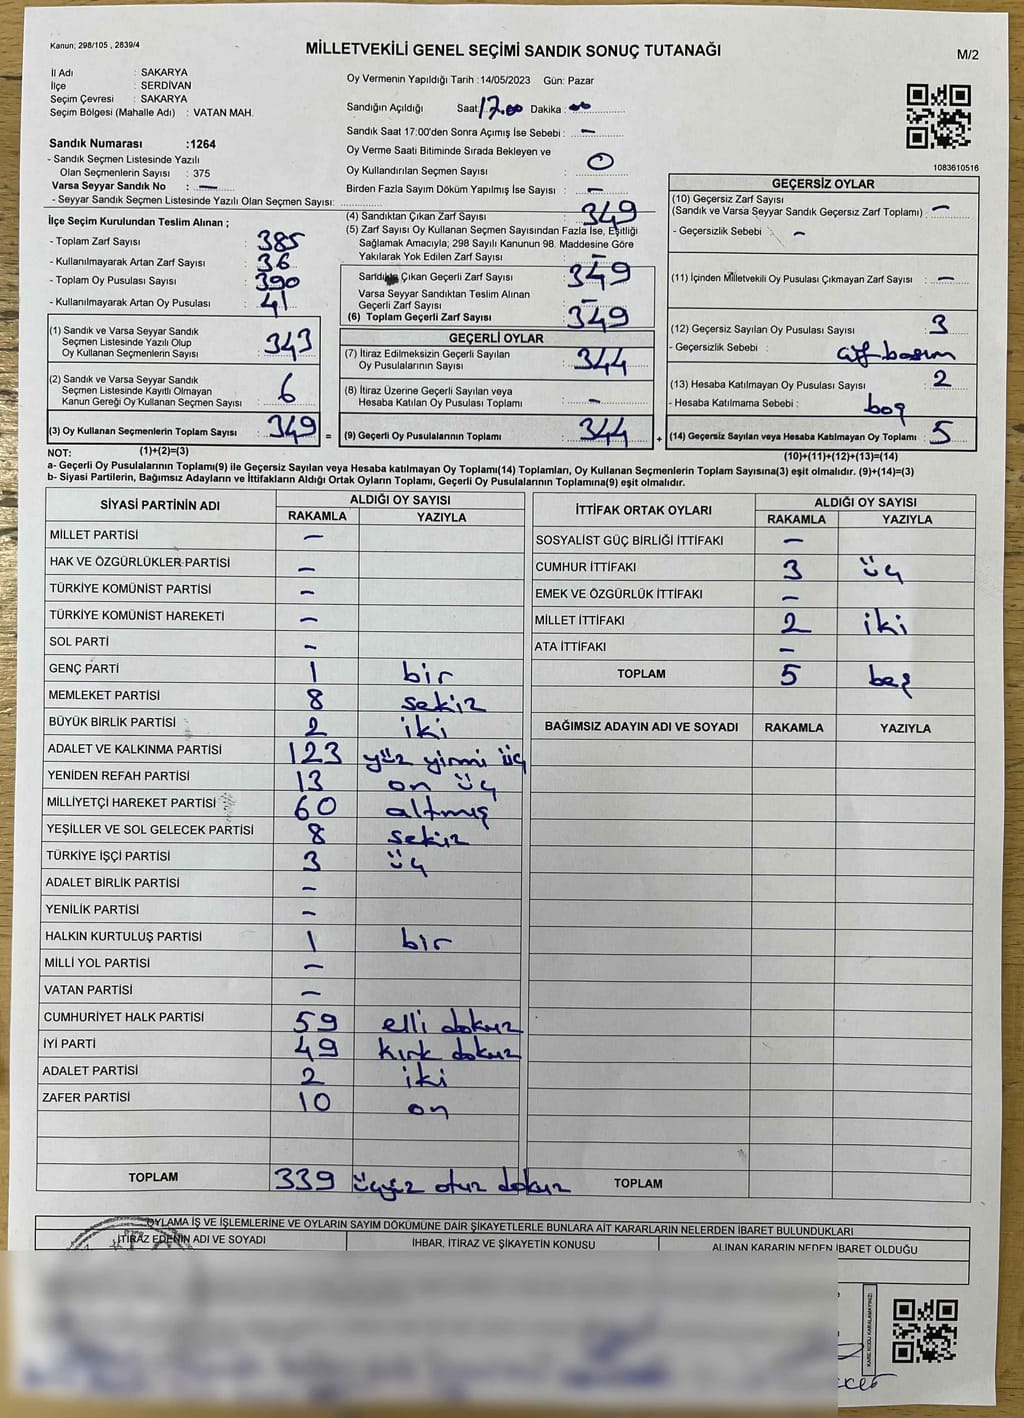 Kanun; 298/105 , 2839/4
MİLLETVEKİLİ GENEL SEÇİMİ SANDIK SONUÇ TUTANAĞI
M/2
İl Adı : SAKARYA
İlçe : SERDİVAN
Seçim Çevresi : SAKARYA
Seçim Bölgesi (Mahalle Adı) : VATAN MAH.
Sandık Numarası :1264
- Sandık Seçmen Listesinde Yazılı
Olan Seçmenlerin Sayısı : 375
Varsa Seyyar Sandık No : —
- Seyyar Sandık Seçmen Listesinde Yazılı Olan Seçmen Sayısı:
Oy Vermenin Yapıldığı Tarih :14/05/2023 Gün: Pazar
Sandığın Açıldığı Saat 17.00 Dakika : 00
Sandık Saat 17:00'den Sonra Açımış İse Sebebi : —
Oy Verme Saati Bitiminde Sırada Bekleyen ve
Oy Kullandırılan Seçmen Sayısı : 0
Birden Fazla Sayım Döküm Yapılmış İse Sayısı : —
1083610516
İlçe Seçim Kurulundan Teslim Alınan ;
- Toplam Zarf Sayısı : 385
- Kullanılmayarak Artan Zarf Sayısı : 36
- Toplam Oy Pusulası Sayısı : 390
- Kullanılmayarak Artan Oy Pusulası : 41
(1) Sandık ve Varsa Seyyar Sandık
Seçmen Listesinde Yazılı Olup
Oy Kullanan Seçmenlerin Sayısı : 343
(2) Sandık ve Varsa Seyyar Sandık
Seçmen Listesinde Kayıtlı Olmayan
Kanun Gereği Oy Kullanan Seçmen Sayısı : 6
(3) Oy Kullanan Seçmenlerin Toplam Sayısı : 349 =
(4) Sandıktan Çıkan Zarf Sayısı : 349
(5) Zarf Sayısı Oy Kullanan Seçmen Sayısından Fazla İse, Eşitliği
Sağlamak Amacıyla; 298 Sayılı Kanunun 98. Maddesine Göre
Yakılarak Yok Edilen Zarf Sayısı : —
Sandıktan Çıkan Geçerli Zarf Sayısı : 349
Varsa Seyyar Sandıktan Teslim Alınan
Geçerli Zarf Sayısı : —
(6) Toplam Geçerli Zarf Sayısı : 349
GEÇERLİ OYLAR
(7) İtiraz Edilmeksizin Geçerli Sayılan
Oy Pusulalarının Sayısı : 344
(8) İtiraz Üzerine Geçerli Sayılan veya
Hesaba Katılan Oy Pusulası Toplamı : —
(9) Geçerli Oy Pusulalarının Toplamı : 344 +
GEÇERSİZ OYLAR
(10) Geçersiz Zarf Sayısı
(Sandık ve Varsa Seyyar Sandık Geçersiz Zarf Toplamı) : —
- Geçersizlik Sebebi : —
(11) İçinden Milletvekili Oy Pusulası Çıkmayan Zarf Sayısı : —
(12) Geçersiz Sayılan Oy Pusulası Sayısı : 3
- Geçersizlik Sebebi : çift basım
(13) Hesaba Katılmayan Oy Pusulası Sayısı : 2
- Hesaba Katılmama Sebebi : boş
(14) Geçersiz Sayılan veya Hesaba Katılmayan Oy Toplamı : 5
NOT: (1)+(2)=(3)
(10)+(11)+(12)+(13)=(14)
a- Geçerli Oy Pusulalarının Toplamı(9) ile Geçersiz Sayılan veya Hesaba katılmayan Oy Toplamı(14) Toplamları, Oy Kullanan Seçmenlerin Toplam Sayısına(3) eşit olmalıdır. (9)+(14)=(3)
b- Siyasi Partilerin, Bağımsız Adayların ve İttifakların Aldığı Ortak Oyların Toplamı, Geçerli Oy Pusulalarının Toplamına(9) eşit olmalıdır.
SİYASİ PARTİNİN ADI ALDIĞI OY SAYISI
RAKAMLA YAZIYLA
MİLLET PARTİSİ —
HAK VE ÖZGÜRLÜKLER PARTİSİ —
TÜRKİYE KOMÜNİST PARTİSİ —
TÜRKİYE KOMÜNİST HAREKETİ —
SOL PARTİ —
GENÇ PARTİ 1 bir
MEMLEKET PARTİSİ 8 sekiz
BÜYÜK BİRLİK PARTİSİ 2 iki
ADALET VE KALKINMA PARTİSİ 123 yüz yirmi üç
YENİDEN REFAH PARTİSİ 13 on üç
MİLLİYETÇİ HAREKET PARTİSİ 60 altmış
YEŞİLLER VE SOL GELECEK PARTİSİ 8 sekiz
TÜRKİYE İŞÇİ PARTİSİ 3 üç
ADALET BİRLİK PARTİSİ —
YENİLİK PARTİSİ —
HALKIN KURTULUŞ PARTİSİ 1 bir
MİLLİ YOL PARTİSİ —
VATAN PARTİSİ —
CUMHURİYET HALK PARTİSİ 59 elli dokuz
İYİ PARTİ 49 kırk dokuz
ADALET PARTİSİ 2 iki
ZAFER PARTİSİ 10 on
TOPLAM 339 üçyüz otuz dokuz
İTTİFAK ORTAK OYLARI ALDIĞI OY SAYISI
RAKAMLA YAZIYLA
SOSYALİST GÜÇ BİRLİĞİ İTTİFAKI —
CUMHUR İTTİFAKI 3 üç
EMEK VE ÖZGÜRLÜK İTTİFAKI —
MİLLET İTTİFAKI 2 iki
ATA İTTİFAKI —
TOPLAM 5 beş
BAĞIMSIZ ADAYIN ADI VE SOYADI RAKAMLA YAZIYLA
TOPLAM
OYLAMA İŞ VE İŞLEMLERİNE VE OYLARIN SAYIM DÖKÜMÜNE DAİR ŞİKAYETLERLE BUNLARA AİT KARARLARIN NELERDEN İBARET BULUNDUKLARI
İTİRAZ EDENİN ADI VE SOYADI İHBAR, İTİRAZ VE ŞİKAYETİN KONUSU ALINAN KARARIN NEDEN İBARET OLDUĞU
KARE KODU KARALAMAYINIZ!